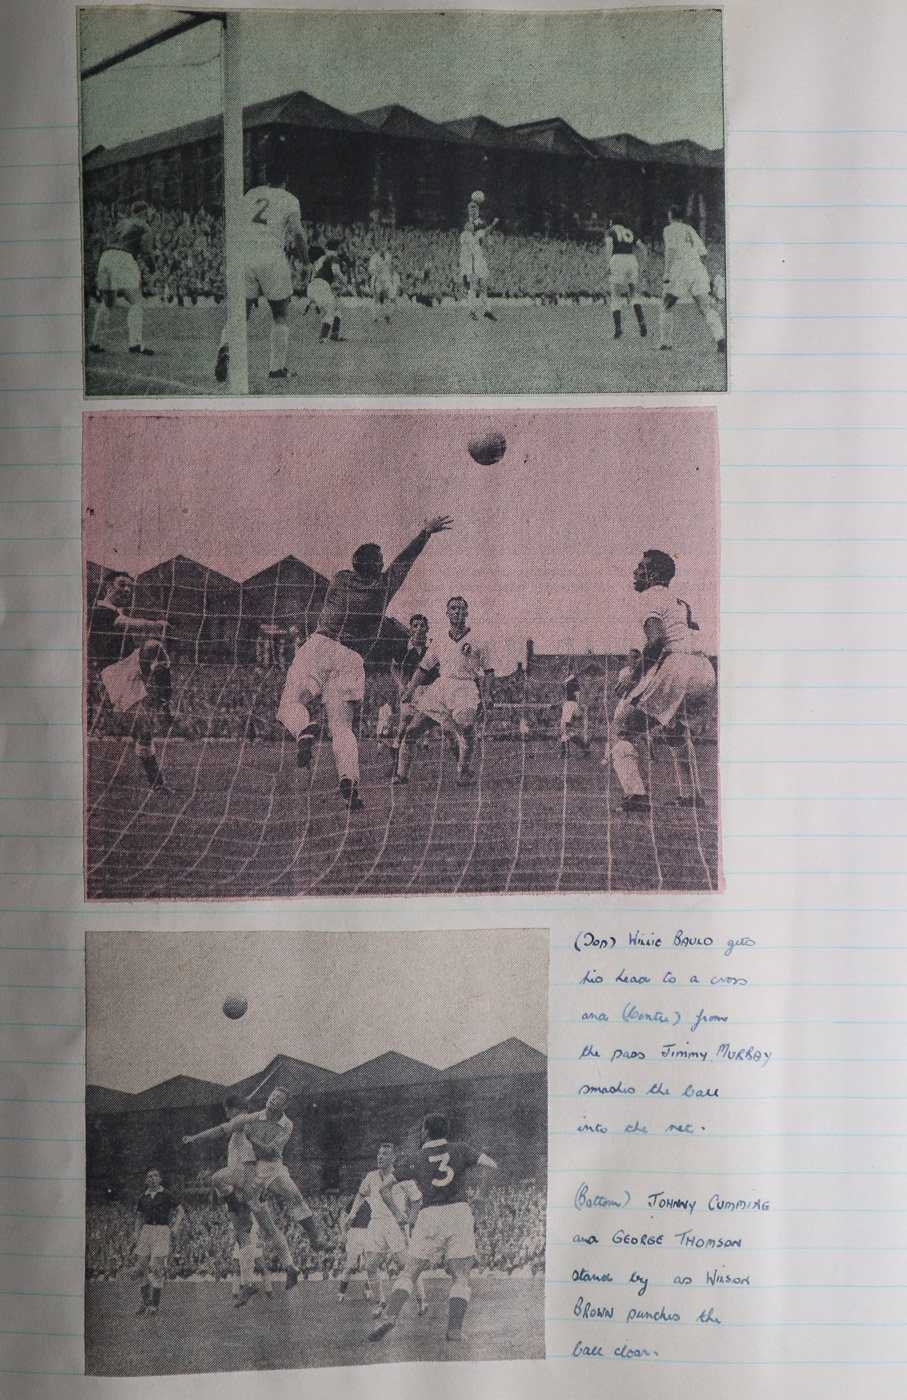 2
10
3
(Top) WILLIE BAULD gets
his head to a cross
and (Centre) from
the pass JIMMY MURRAY
smashes the ball
into the net.
(Bottom) JOHNNY CUMMING
and GEORGE THOMSON
stand by as WILSON
BROWN punches the
ball clear.